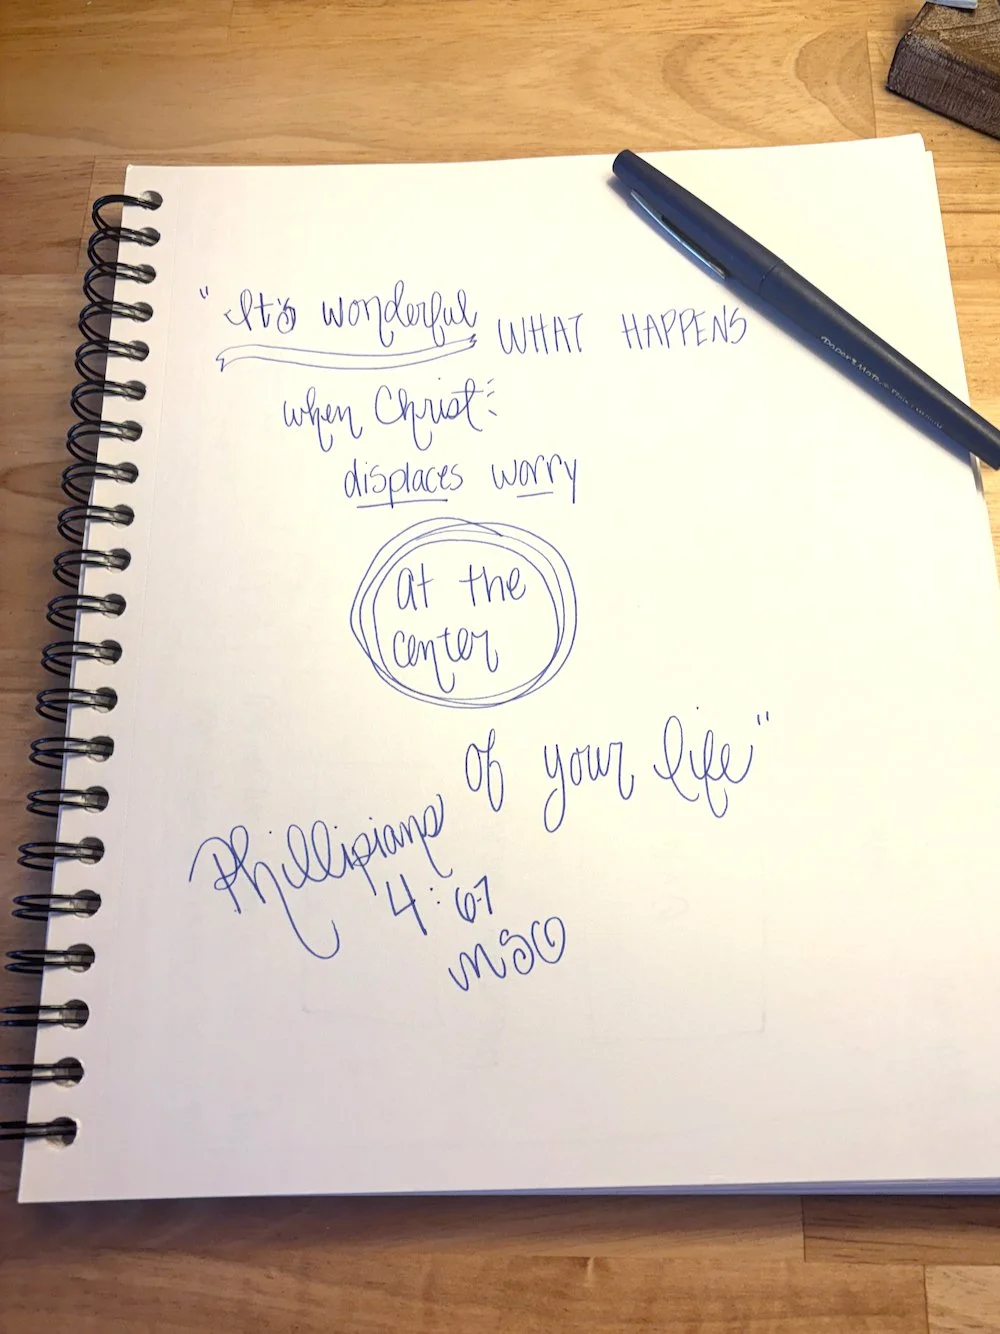 "It's wonderful WHAT HAPPENS
when Christ
displaces worry
at the
center
of your life"
Phillipians
4:6-7
MSG